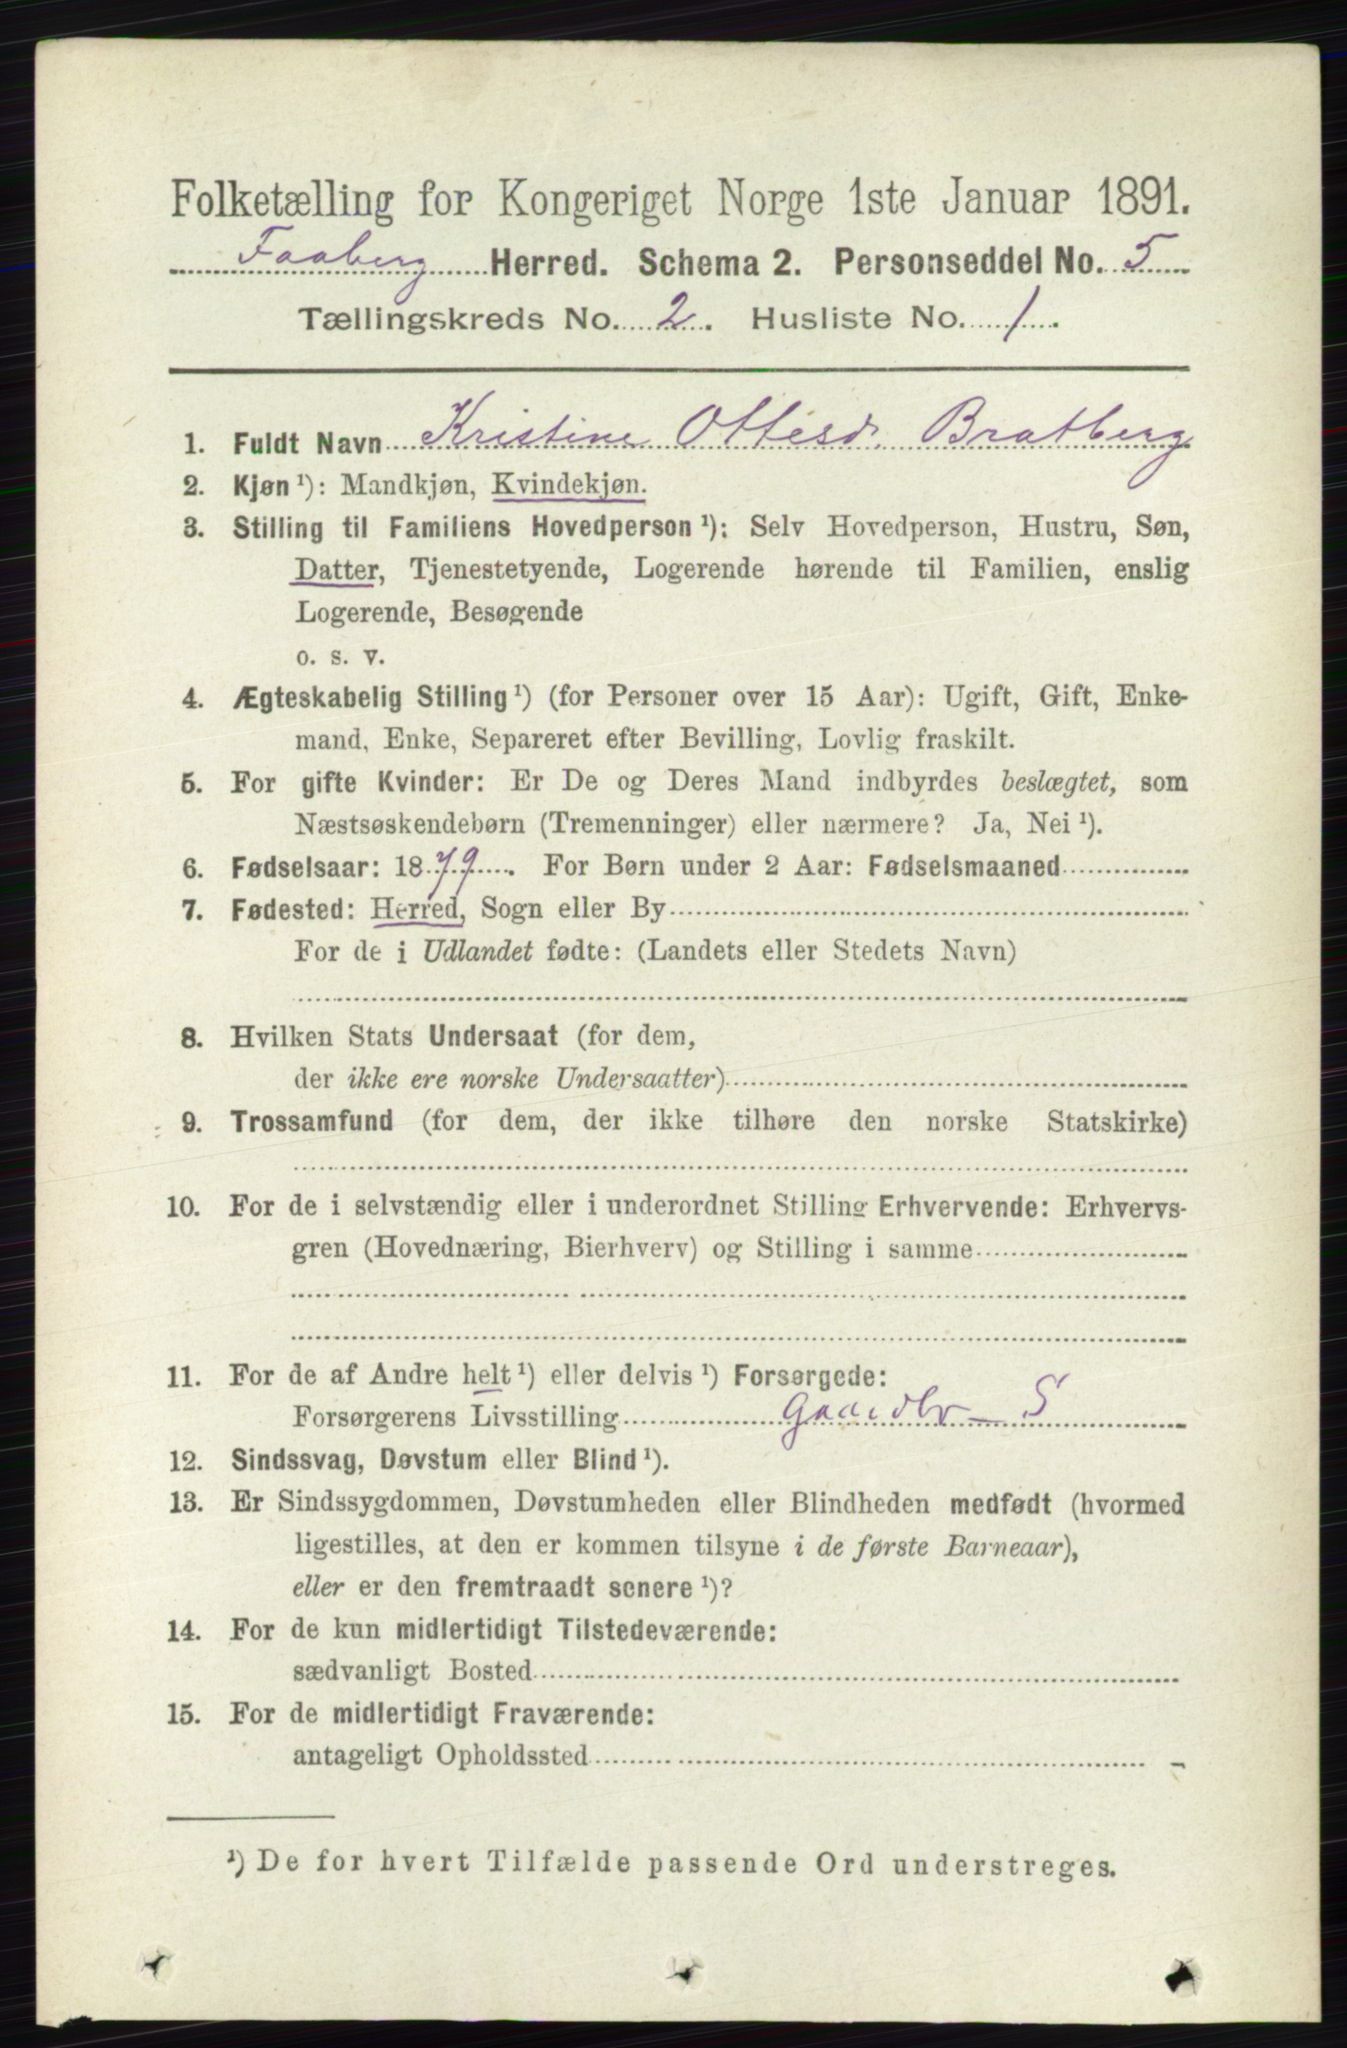 Folketælling for Kongeriget Norge 1ste Januar 1891.
Faaberg Herred. Schema 2. Personseddel No. 5
Tællingskreds No. 2. Husliste No. 1.
1. Fuldt Navn Kristine Ottesd. Bratberg
2. Kjøn ¹): Mandkjøn, Kvindekjøn.
3. Stilling til Familiens Hovedperson ¹): Selv Hovedperson, Hustru, Søn,
Datter, Tjenestetyende, Logerende hørende til Familien, enslig
Logerende, Besøgende
o. s. v.
4. Ægteskabelig Stilling ¹) (for Personer over 15 Aar): Ugift, Gift, Enke-
mand, Enke, Separeret efter Bevilling, Lovlig fraskilt.
5. For gifte Kvinder: Er De og Deres Mand indbyrdes beslægtet, som
Næstsøskendebørn (Tremenninger) eller nærmere? Ja, Nei ¹).
6. Fødselsaar: 1879. For Børn under 2 Aar: Fødselsmaaned
7. Fødested: Herred, Sogn eller By
For de i Udlandet fødte: (Landets eller Stedets Navn)
8. Hvilken Stats Undersaat (for dem,
der ikke ere norske Undersaatter)
9. Trossamfund (for dem, der ikke tilhøre den norske Statskirke)
10. For de i selvstændig eller i underordnet Stilling Erhvervende: Erhvervs-
gren (Hovednæring, Bierhverv) og Stilling i samme
11. For de af Andre helt ¹) eller delvis ¹) Forsørgede:
Forsørgerens Livsstilling Gaardbr S
12. Sindssvag, Døvstum eller Blind ¹).
13. Er Sindssygdommen, Døvstumheden eller Blindheden medfødt (hvormed
ligestilles, at den er kommen tilsyne i de første Barneaar),
eller er den fremtraadt senere ¹)?
14. For de kun midlertidigt Tilstedeværende:
sædvanligt Bosted
15. For de midlertidigt Fraværende:
antageligt Opholdssted
¹) De for hvert Tilfælde passende Ord understreges.